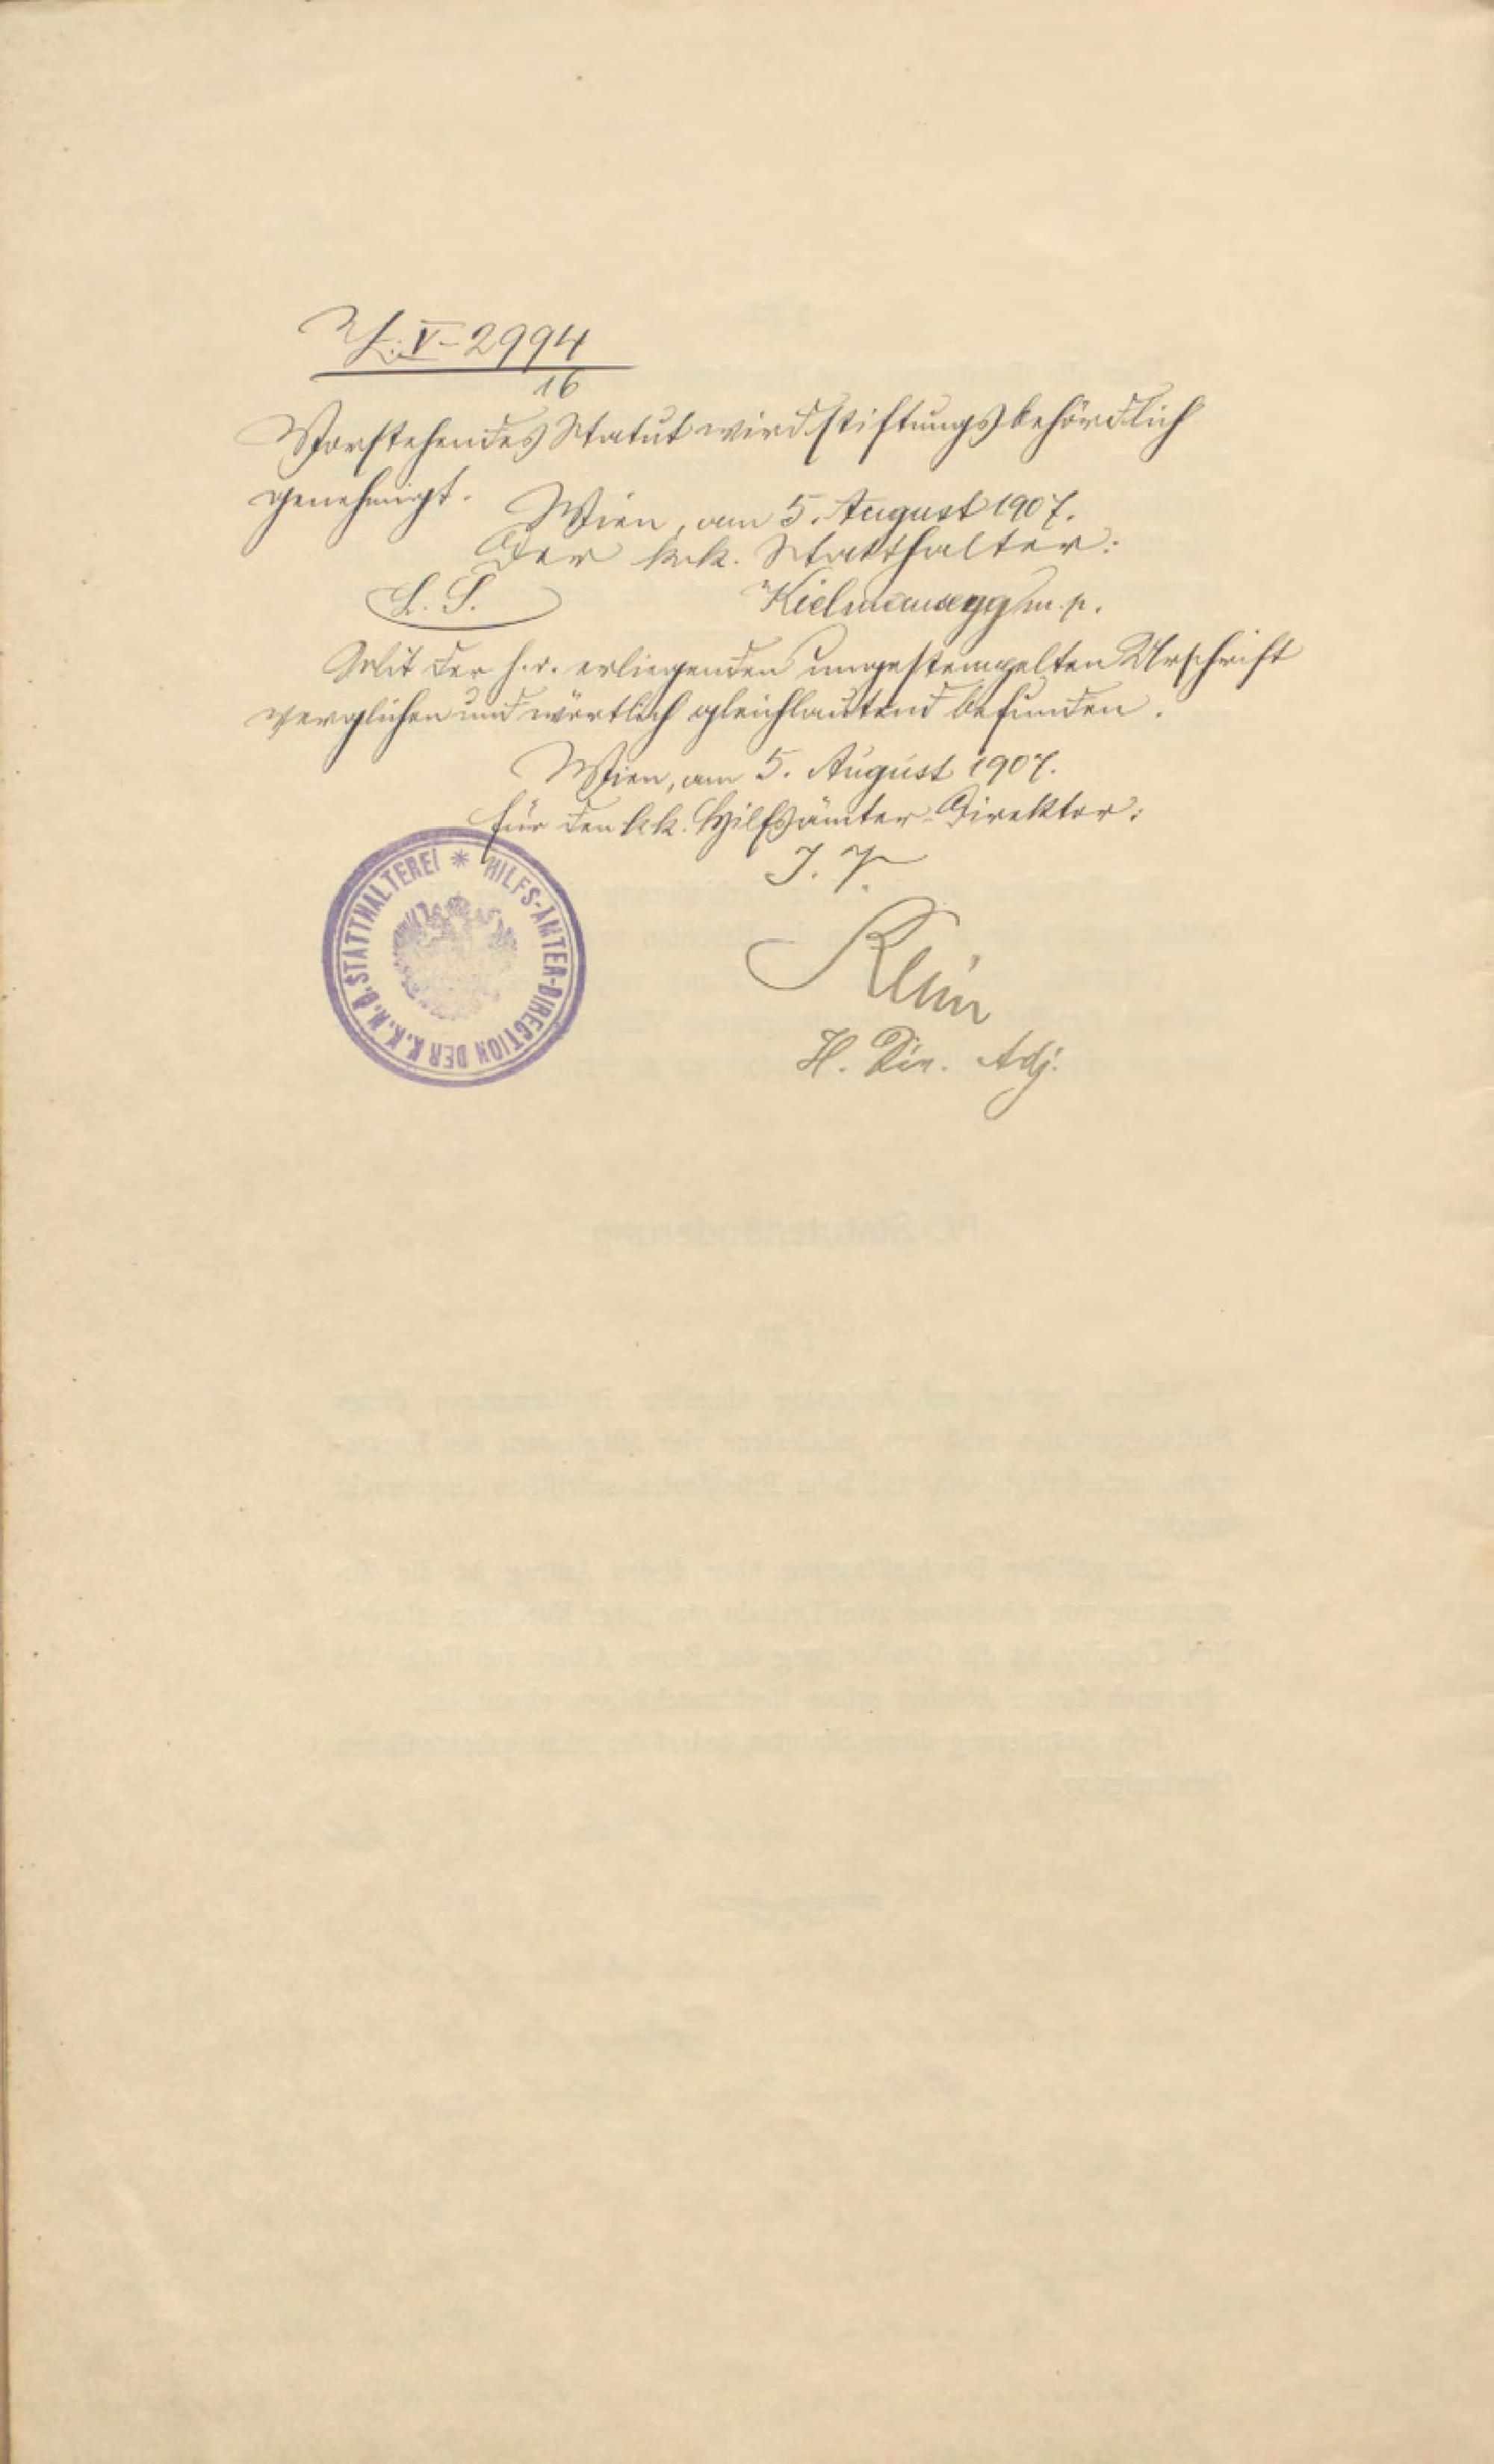 Z. V-2994
16
Vorstehendes Statut wird stiftungsbehördlich
genehmigt.
Wien, am 5. August 1907.
Der k.k. Statthalter:
L. S.
Kielmansegg m. p.
Mit der h.o. erliegenden ungestempelten Urschrift
verglichen und wörtlich gleichlautend befunden.
Wien, am 5. August 1907.
Für den k.k. Hilfsämter-Direktor:
I. V.
Klein
H. Dir. Adj.
HILFS-ÄMTER-DIRECTION DER K.K.N.Ö. STATTHALTEREI *